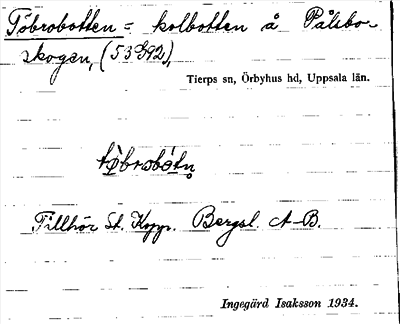 Tobrobotten = kolbotten å Pålsbo-
skogen, (53 G92),
Tierps sn, Örbyhus hd, Uppsala län.
Tillhör St. Kopp. Bergsl. A-B.
Ingegärd Isaksson 1934.